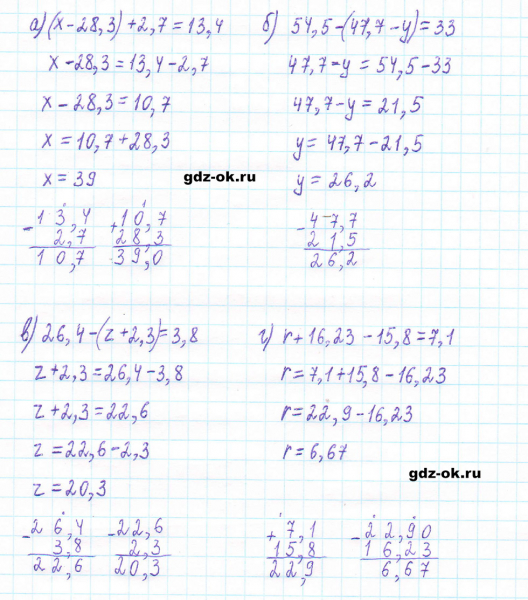 а) (x - 28,3) + 2,7 = 13,4
x - 28,3 = 13,4 - 2,7
x - 28,3 = 10,7
x = 10,7 + 28,3
x = 39
- 13,4
2,7
10,7
+ 10,7
28,3
39,0
б) 54,5 - (47,7 - y) = 33
47,7 - y = 54,5 - 33
47,7 - y = 21,5
y = 47,7 - 21,5
y = 26,2
gdz-ok.ru
- 47,7
21,5
26,2
в) 26,4 - (z + 2,3) = 3,8
z + 2,3 = 26,4 - 3,8
z + 2,3 = 22,6
z = 22,6 - 2,3
z = 20,3
- 26,4
3,8
22,6
- 22,6
2,3
20,3
г) r + 16,23 - 15,8 = 7,1
r = 7,1 + 15,8 - 16,23
r = 22,9 - 16,23
r = 6,67
gdz-ok.ru
+ 7,1
15,8
22,9
- 22,90
16,23
6,67